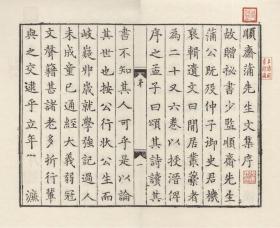 順齋蒲先生文集序
故贈秘書少監順齋先生
蒲公既沒仲子御史君機
裒輯遺文曰閒居叢藁釐
為二十又六卷以授溍俾
序之孟子曰頌其詩讀其
序
一
書不知其人可乎是以論
其世也按公行狀公生而
岐嶷丱歲就學強記過人
未成童已通經大義弱冠
文聲籍甚諸老多折行輩
與之交逮乎立年 濂